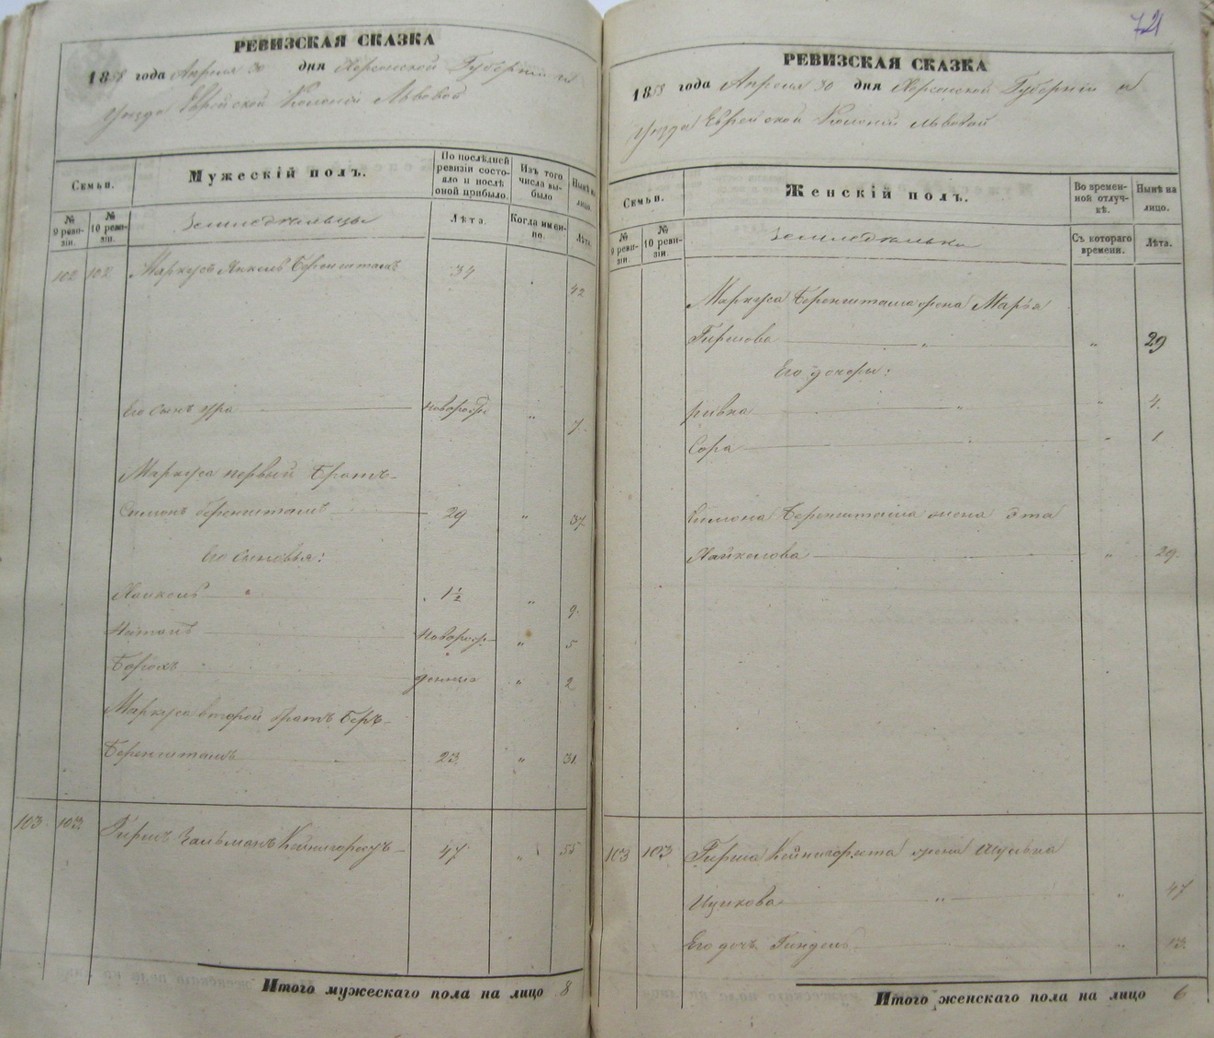 РЕВИЗСКАЯ СКАЗКА
1858 года Апреля 30 дня Херсонской Губернии и
Уезда Еврейской Колонии Львовой
Семьи.
Мужескій полъ.
По послѣдней
ревизіи состо-
яло и послѣ
оной прибыло.
Изъ того
числа вы-
было
Нынѣ на
лицо.
№
9 реви-
зіи.
№
10 реви-
зіи.
Земледельцы
Лѣта.
Когда имен-
но.
Лѣта.
102 102 Маркусъ Беренштамъ 34 „ 42
Его сынъ 7
Маркуса первый братъ
Симонъ Беренштамъ 29 „ 37
Его сыновья:
Хаикель „ 1½ „ 9
Натанъ новорож- „ 5
Борохъ денные „ 2
Маркуса второй братъ Беръ
Беренштамъ 23 „ 31
103 103 Гиршъ Зальманъ 47 „ 55
Итого мужескаго пола на лицо 8
72
РЕВИЗСКАЯ СКАЗКА
1858 года Апреля 30 дня Херсонской Губерніи и
Уезда Еврейской Колоніи Львовой
Семьи.
Женскій полъ.
Во времен-
ной отлуч-
кѣ.
Нынѣ на
лицо.
№
9 реви-
зіи.
№
10 реви-
зіи.
Земледельки
Съ котораго
времени.
Лѣта.
Маркуса Беренштама жена Марья
Гиршова „ „ 29
Его дочери:
Ривка „ „ 4
Сора „ 1
Симона Беренштама жена Эта
Хайкелова „ 29
103 103 Гирша жена
Ицикова „ „ 47
Его дочь Гиндель „ 13
Итого женскаго пола на лицо 6